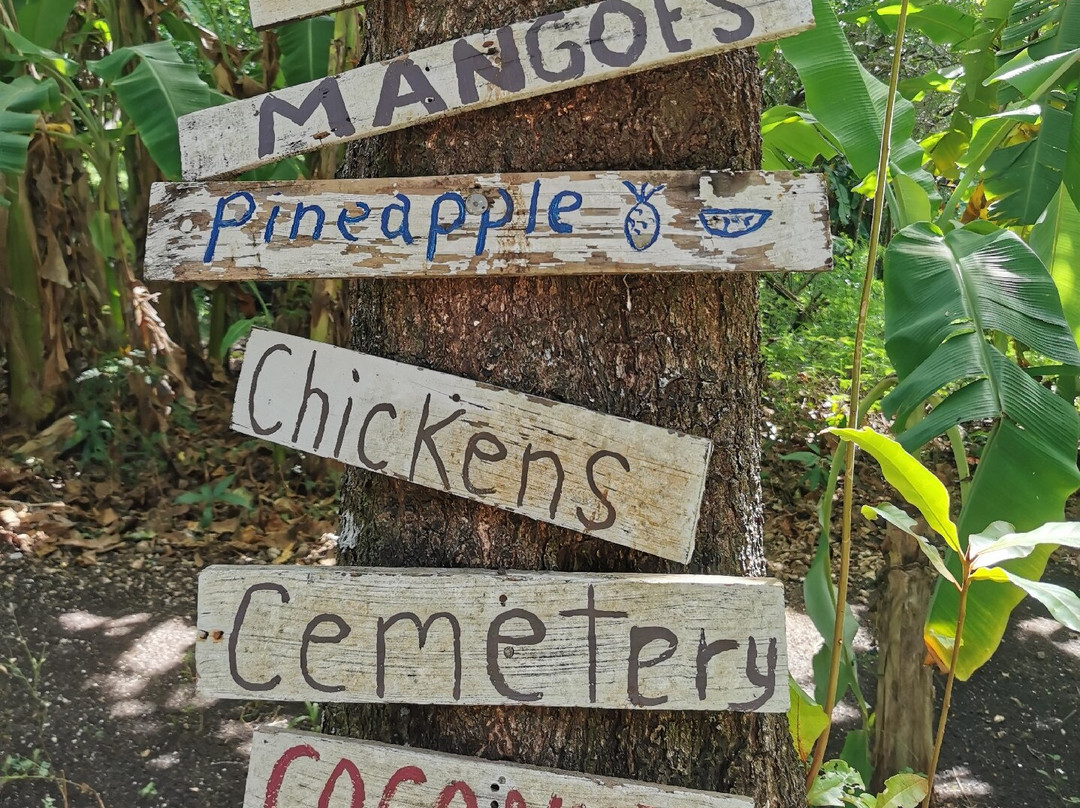 MANGOES
Pineapple
Chickens
Cemetery